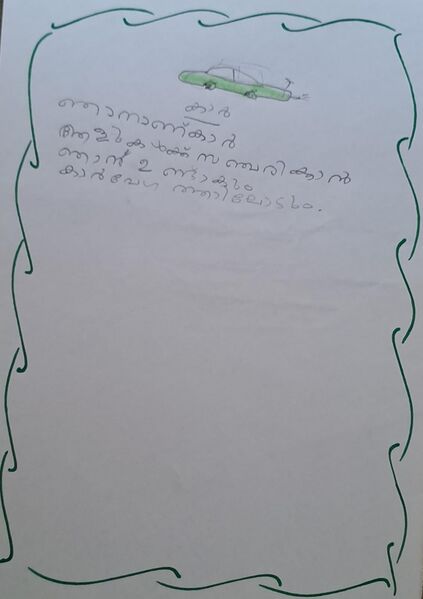 കാർ
ഞാനാണ് കാർ
ആളുകൾക്ക് സഞ്ചരിക്കാൻ
ഞാൻ ഉണ്ടാകും
കാർ വേഗത്തിലോടും.